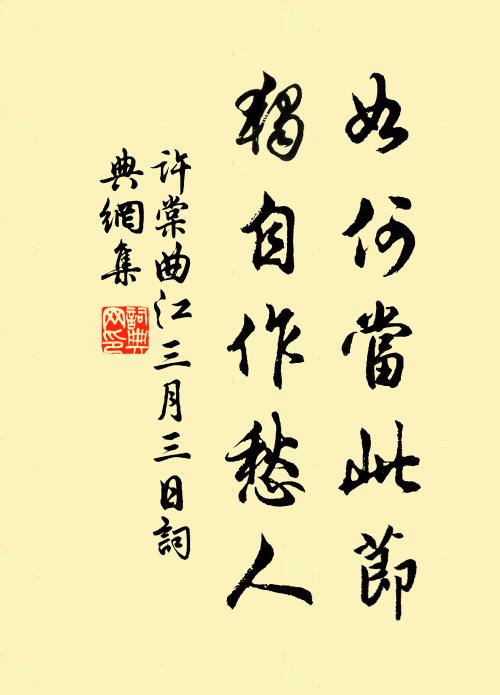 如何當此節
獨自作愁人
許棠曲江三月三日詞
典網集
詞典网印